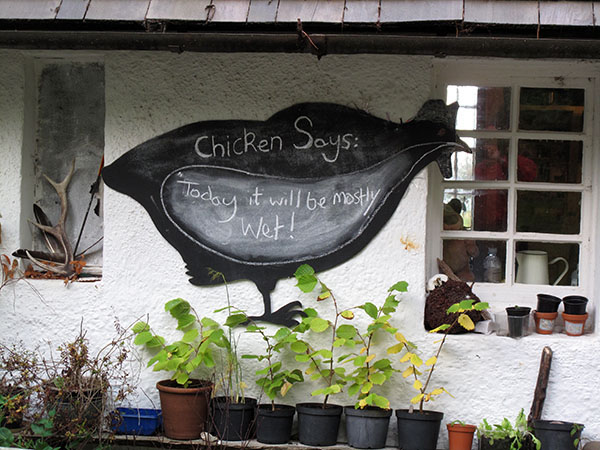 Chicken Says:
Today it will be mostly
Wet!